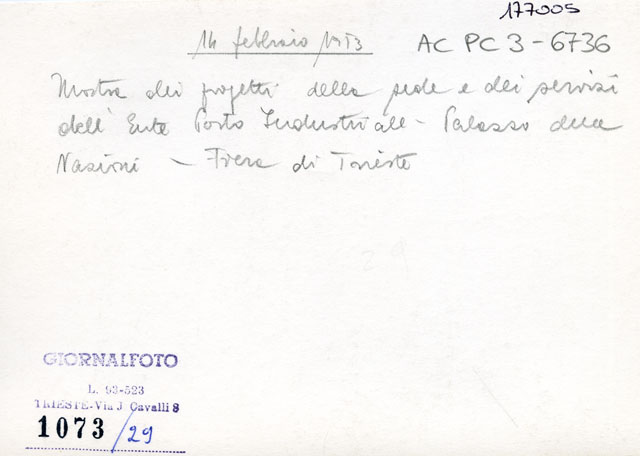 177005
14 febbraio 1953 AC PC 3-6736
Mostra dei progetti della sede e dei servizi
dell'Ente Porto Industriale - Palazzo delle
Nazioni - Fiera di Trieste
29
GIORNALFOTO
L. 93-523
TRIESTE-Via J Cavalli 8
1073/29